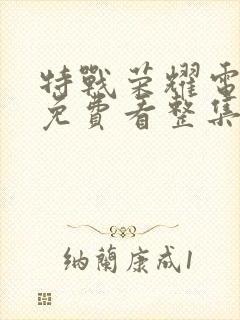 特戰荣耀電
免費看整集
纳蘭康成1